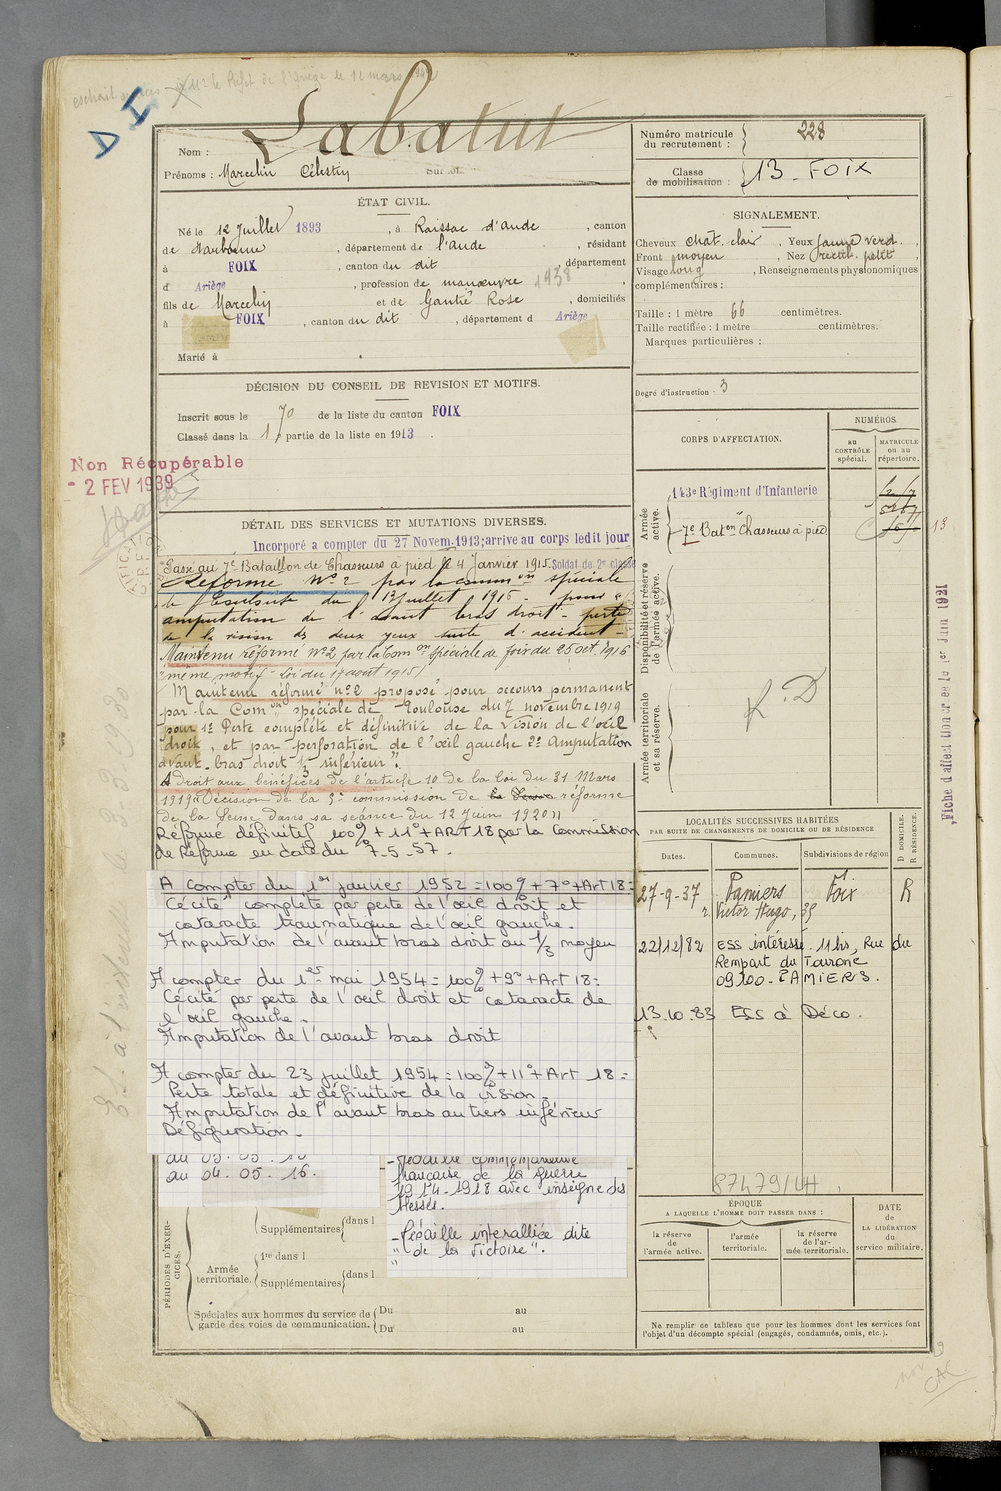 D I
Mr le Préfet de l'Ariège le 12 mars
Nom : Labatut
Prénoms : Marcelin Célestin Surnom
ÉTAT CIVIL.
Né le 12 Juillet 1893, à Raissac d'Aude, canton
de Narbonne, département de l'Aude, résidant
à FOIX, canton du dit, département
d' Ariège, profession de manœuvre 1938
fils de Marcelin et de Gautié Rose, domiciliés
à FOIX, canton du dit, département d Ariège
Marié à
DÉCISION DU CONSEIL DE REVISION ET MOTIFS.
Inscrit sous le 70 de la liste du canton FOIX
Classé dans la 1 partie de la liste en 1913.
Non Récupérable
- 2 FEV 1939
DÉTAIL DES SERVICES ET MUTATIONS DIVERSES.
Incorporé a compter du 27 Novem. 1913; arrive au corps ledit jour
Passé au 7e Bataillon de Chasseurs à pied le 4 Janvier 1915. Soldat de 2e classe
Réformé No 2 par la comm on spéciale
de Toulouse du 13 juillet 1916 pour "
amputation de l'avant bras droit - perte
de la vision des deux yeux suite d'accident -
Maintenu réformé no 2 par la Com on Spéciale de foix du 25 oct. 1916
(même motif - Loi du 17 août 1915)
Maintenu réformé no 2 proposé pour secours permanent
par la Com on spéciale de Toulouse du 7 novembre 1919
pour 1o Perte complète et définitive de la vision de l'œil
droit, et par perforation de l'œil gauche 2o Amputation
avant-bras droit 1/3 inférieur".
A droit aux bénéfices de l'article 10 de la loi du 31 Mars
1919 Décision de la 5e commission de réforme
de la Seine dans sa séance du 12 Juin 1920
Réformé définitif 100% + 11° + ART 18 par la Commission
de Réforme en date du 7-5-57.
A compter du 1er janvier 1952 = 100% + 7° + Art 18 =
Cécité complète par perte de l'œil droit et
cataracte traumatique de l'œil gauche.
Amputation de l'avant bras droit au 1/3 moyen
A compter du 1er mai 1954 = 100% + 9° + Art 18 =
Cécité par perte de l'œil droit et cataracte de
l'œil gauche.
Amputation de l'avant bras droit
A compter du 23 juillet 1954 = 100% + 11° + Art 18 =
Perte totale et définitive de la vision.
Amputation de l'avant bras au tiers inférieur
Défiguration.
au 04.05.16.
- Médaille commémorative
française de la guerre
1914-1918 avec insigne des
blessés.
- Médaille interalliée dite
"de la Victoire".
PÉRIODES D'EXERCICES.
Supplémentaires dans l
Armée territoriale.
1re dans l
Supplémentaires dans l
Spéciales aux hommes du service de garde des voies de communication.
Du au
Du au
Numéro matricule du recrutement : 228
Classe de mobilisation : 13 - FOIX
SIGNALEMENT.
Cheveux chât. clair, Yeux jaune verd.
Front moyen, Nez rectil. petit,
Visage long, Renseignements physionomiques
complémentaires :
Taille : 1 mètre 66 centimètres.
Taille rectifiée : 1 mètre centimètres.
Marques particulières :
Degré d'instruction : 3
CORPS D'AFFECTATION.
NUMÉROS
AU CONTRÔLE spécial.
MATRICULE OU AU répertoire.
Armée active.
143e Régiment d'Infanterie
7e Bat on Chasseurs à pied
13
Disponibilité et réserve de l'armée active.
Armée territoriale et sa réserve.
R. D
Fiche d'affectation créée le 1er Juin 1921
LOCALITÉS SUCCESSIVES HABITÉES
PAR SUITE DE CHANGEMENTS DE DOMICILE OU DE RÉSIDENCE
D DOMICILE. R RÉSIDENCE.
Dates. Communes. Subdivisions de région
27-9-37 Pamiers Foix R
r. Victor Hugo, 35
22/12/82 ESS intéressé - 11 bis, Rue du
Rempart du Touronc
09100 - PAMIERS.
13.10.83 ESS à Déco.
87479/LH
ÉPOQUE
A LAQUELLE L'HOMME DOIT PASSER DANS :
la réserve de l'armée active.
l'armée territoriale.
la réserve de l'armée territoriale.
DATE de LA LIBÉRATION du service militaire.
Ne remplir ce tableau que pour les hommes dont les services font
l'objet d'un décompte spécial (engagés, condamnés, omis, etc.).